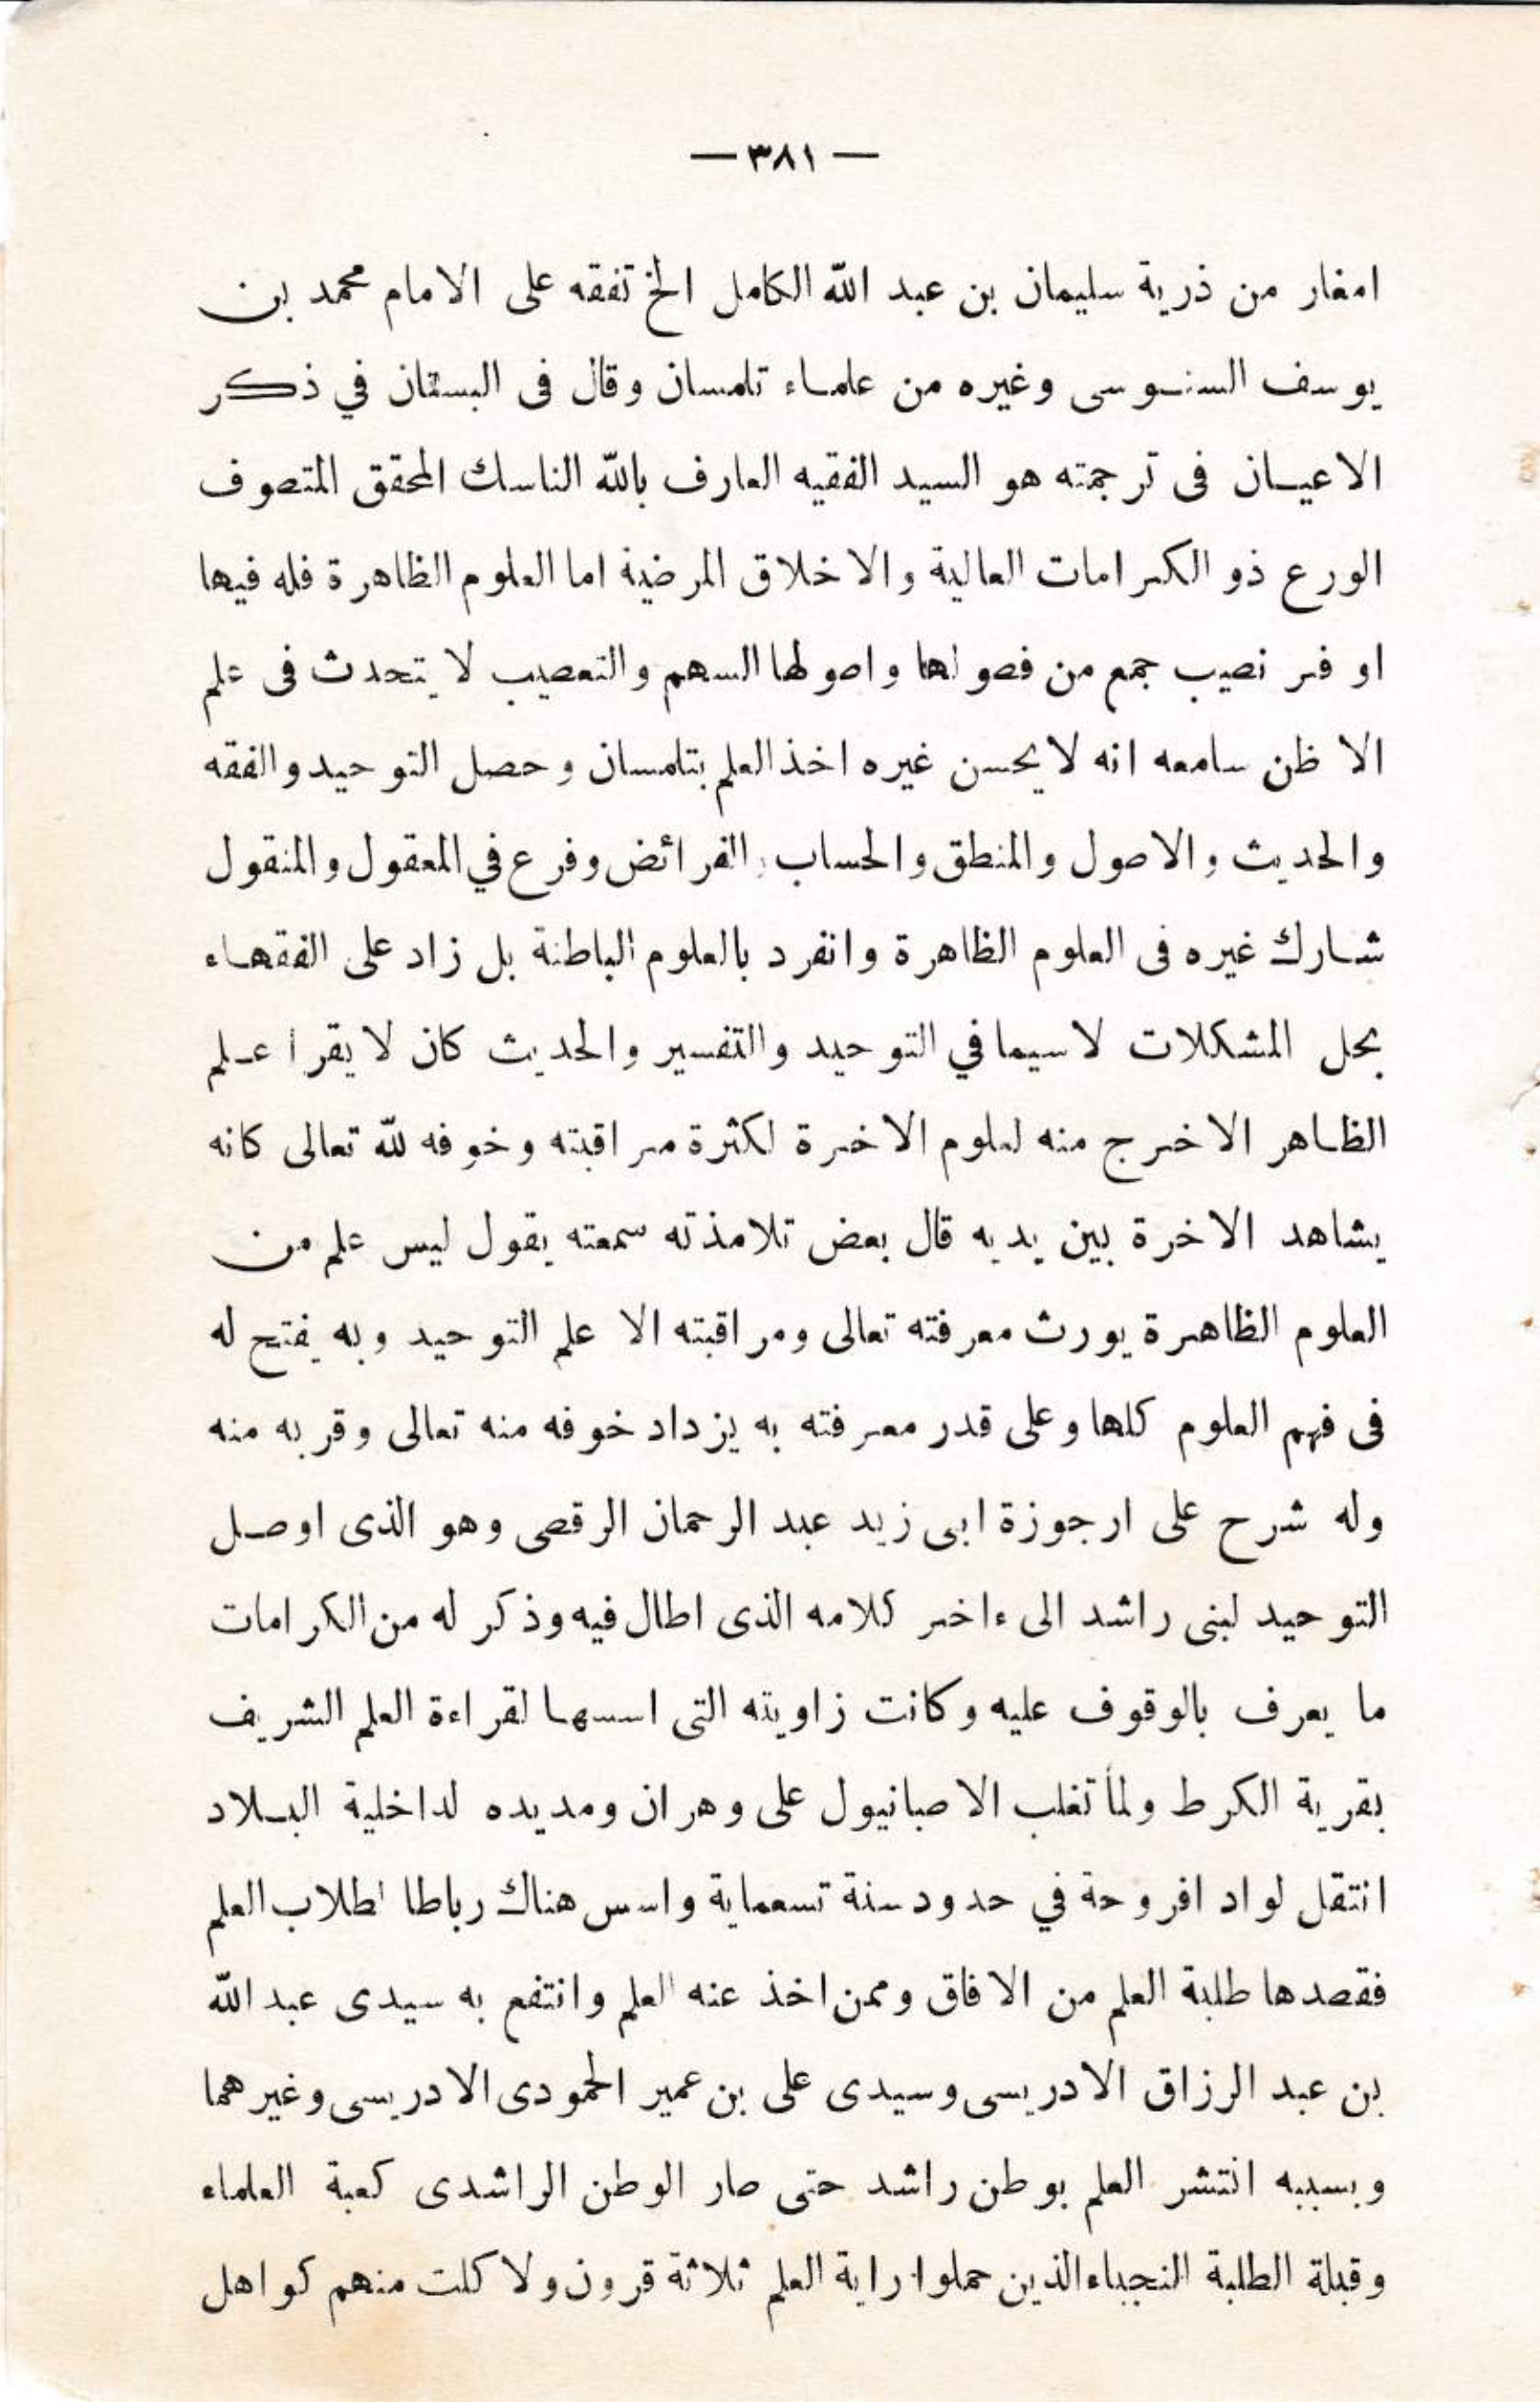 — ٣٨١ —
امغار من ذرية سليمان بن عبد الله الكامل الخ تفقه على الامام محمد بن
يوسف السنوسى وغيره من علماء تلمسان وقال فى البستان في ذكر
الاعيان فى ترجمته هو السيد الفقيه العارف بالله الناسك المحقق المتصوف
الورع ذو الكرامات العالية والاخلاق المرضية اما العلوم الظاهرة فله فيها
اوفر نصيب جمع من فصولها واصولها السهم والتعصيب لا يتحدث فى علم
الا ظن سامعه انه لا يحسن غيره اخذ العلم بتلمسان وحصل التوحيد والفقه
والحديث والاصول والمنطق والحساب والفرائض وفرع في المعقول والمنقول
شارك غيره فى العلوم الظاهرة وانفرد بالعلوم الباطنة بل زاد على الفقهاء
بحل المشكلات لا سيما في التوحيد والتفسير والحديث كان لا يقرأ علم
الظاهر الا خرج منه لعلوم الاخرة لكثرة مراقبته وخوفه لله تعالى كانه
يشاهد الاخرة بين يديه قال بعض تلامذته سمعته يقول ليس علم من
العلوم الظاهرة يورث معرفته تعالى ومراقبته الا علم التوحيد وبه يفتح له
فى فهم العلوم كلها وعلى قدر معرفته به يزداد خوفه منه تعالى وقربه منه
وله شرح على ارجوزة ابى زيد عبد الرحمان الرقصى وهو الذى اوصل
التوحيد لبنى راشد الى ءاخر كلامه الذى اطال فيه وذكر له من الكرامات
ما يعرف بالوقوف عليه وكانت زاويته التى اسسها لقراءة العلم الشريف
بقرية الكرط ولما تغلب الاصبانيول على وهران ومد يده لداخلية البلاد
انتقل لواد افروحة في حدود سنة تسعماية واسس هناك رباطا لطلاب العلم
فقصدها طلبة العلم من الافاق وممن اخذ عنه العلم وانتفع به سيدى عبد الله
بن عبد الرزاق الادريسى وسيدى على بن عمير الحمودى الادريسى وغيرهما
وبسببه انتشر العلم بوطن راشد حتى صار الوطن الراشدى كعبة العلماء
وقبلة الطلبة النجباء الذين حملوا راية العلم ثلاثة قرون ولا كلت منهم كواهل